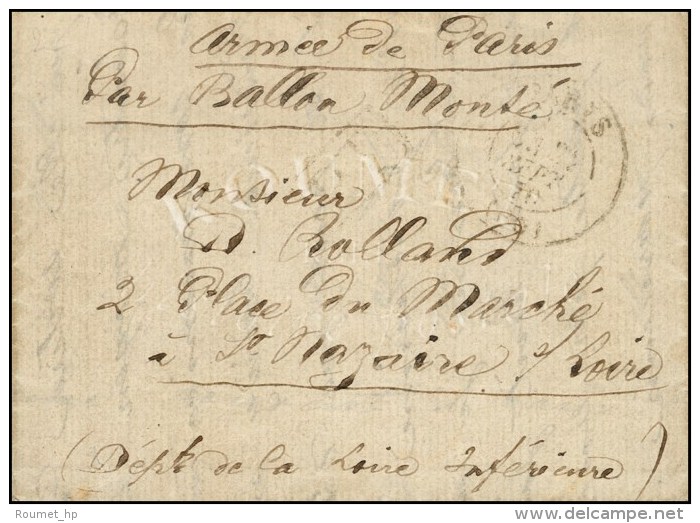 Armée de Paris
Par Ballon Monté
PARIS
Monsieur
D. Rolland
2 Place du Marché
à St. Nazaire s/ Loire
(Dépt. de la Loire Inférieure)
ROUMET
Roumet_hp
delcampe.net